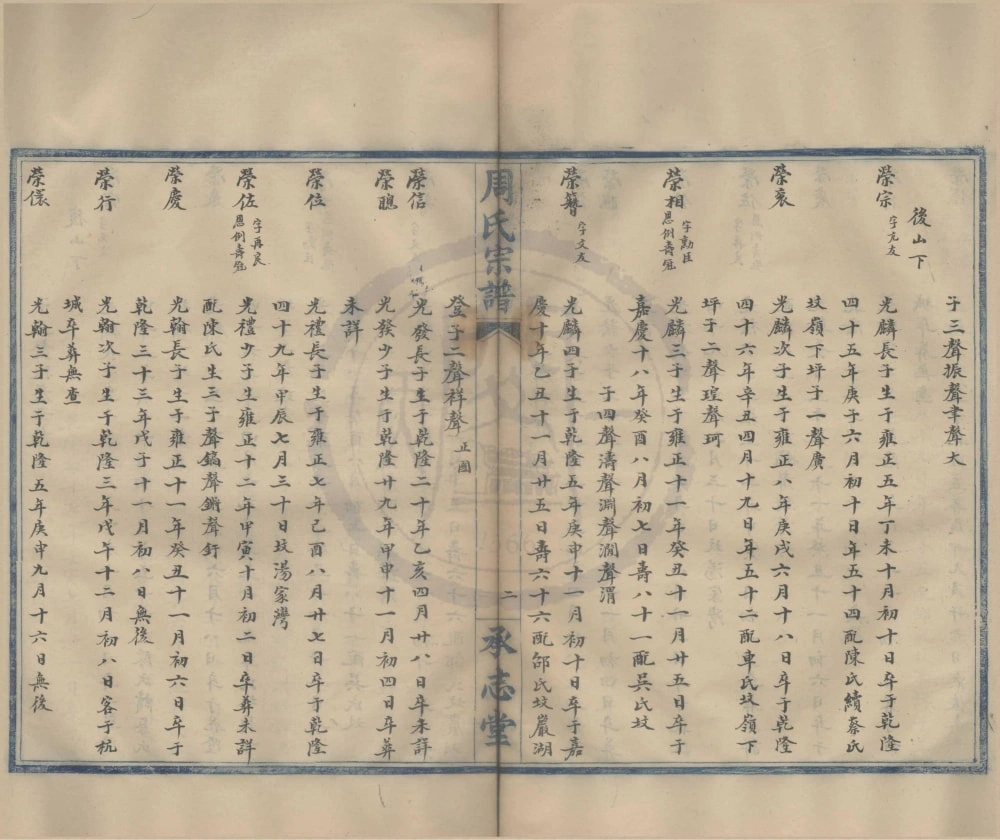 子三聲振聲聿聲大
後山下
榮宗 字亢友
光麟長子生于雍正五年丁未十月初十日卒于乾隆
四十五年庚子六月初十日年五十四配陳氏續蔡氏
坟嶺下坪子一聲廣
榮袞
光麟次子生于雍正八年庚戌六月十八日卒于乾隆
四十六年辛丑四月十九日年五十二配車氏坟嶺下
坪子二聲瑝聲珂
榮相 字勳臣 恩例壽冠
光麟三子生于雍正十一年癸丑十一月廿五日卒于
嘉慶十八年癸酉八月初七日壽八十一配吳氏坟
子四聲濤聲淵聲澗聲渭
榮簪 字文友
光麟四子生于乾隆五年庚申十一月初十日卒于嘉
慶十年乙丑十一月廿五日壽六十六配邰氏坟巖湖
周氏宗譜
二
承志堂
登子二聲祥聲 正國
榮信
光發長子生于乾隆二十年乙亥四月廿八日卒未詳
榮聰
光發少子生于乾隆廿九年甲申十一月初四日卒葬
未詳
榮位
光禮長子生于雍正七年己酉八月廿七日卒于乾隆
四十九年甲辰七月三十日坟湯家灣
榮佐 字再良 恩例壽冠
光禮少子生雍正十二年甲寅十月初二日卒葬未詳
配陳氏生三子聲鎬聲鏘聲釪
榮慶
光翰長子生于雍正十一年癸丑十一月初六日卒于
乾隆三十三年戊子十一月初八日無後
榮行
光翰次子生于乾隆三年戊午十二月初八日客于杭
城卒葬無查
榮儇
光翰三子生于乾隆五年庚申九月十六日無後